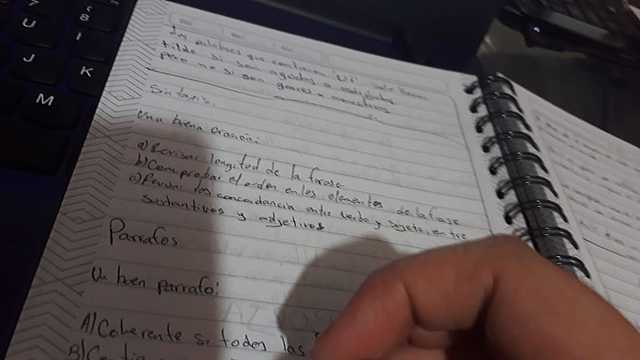 7
8
U
I
J
K
M
las palabras que contienen "UI" solo llevan
tilde si son agudas o esdrújulas
pero no si son graves o monosílabas
Sintaxis.
Una buena oración:
a) Revisar longitud de la frase
b) Comprobar el orden en los elementos de la frase
c) Revisar las concordancia entre verbo y sujeto, entre
sustantivos y adjetivos
Parrafos
Un buen parrafo:
A) Coherente si todas las
B)